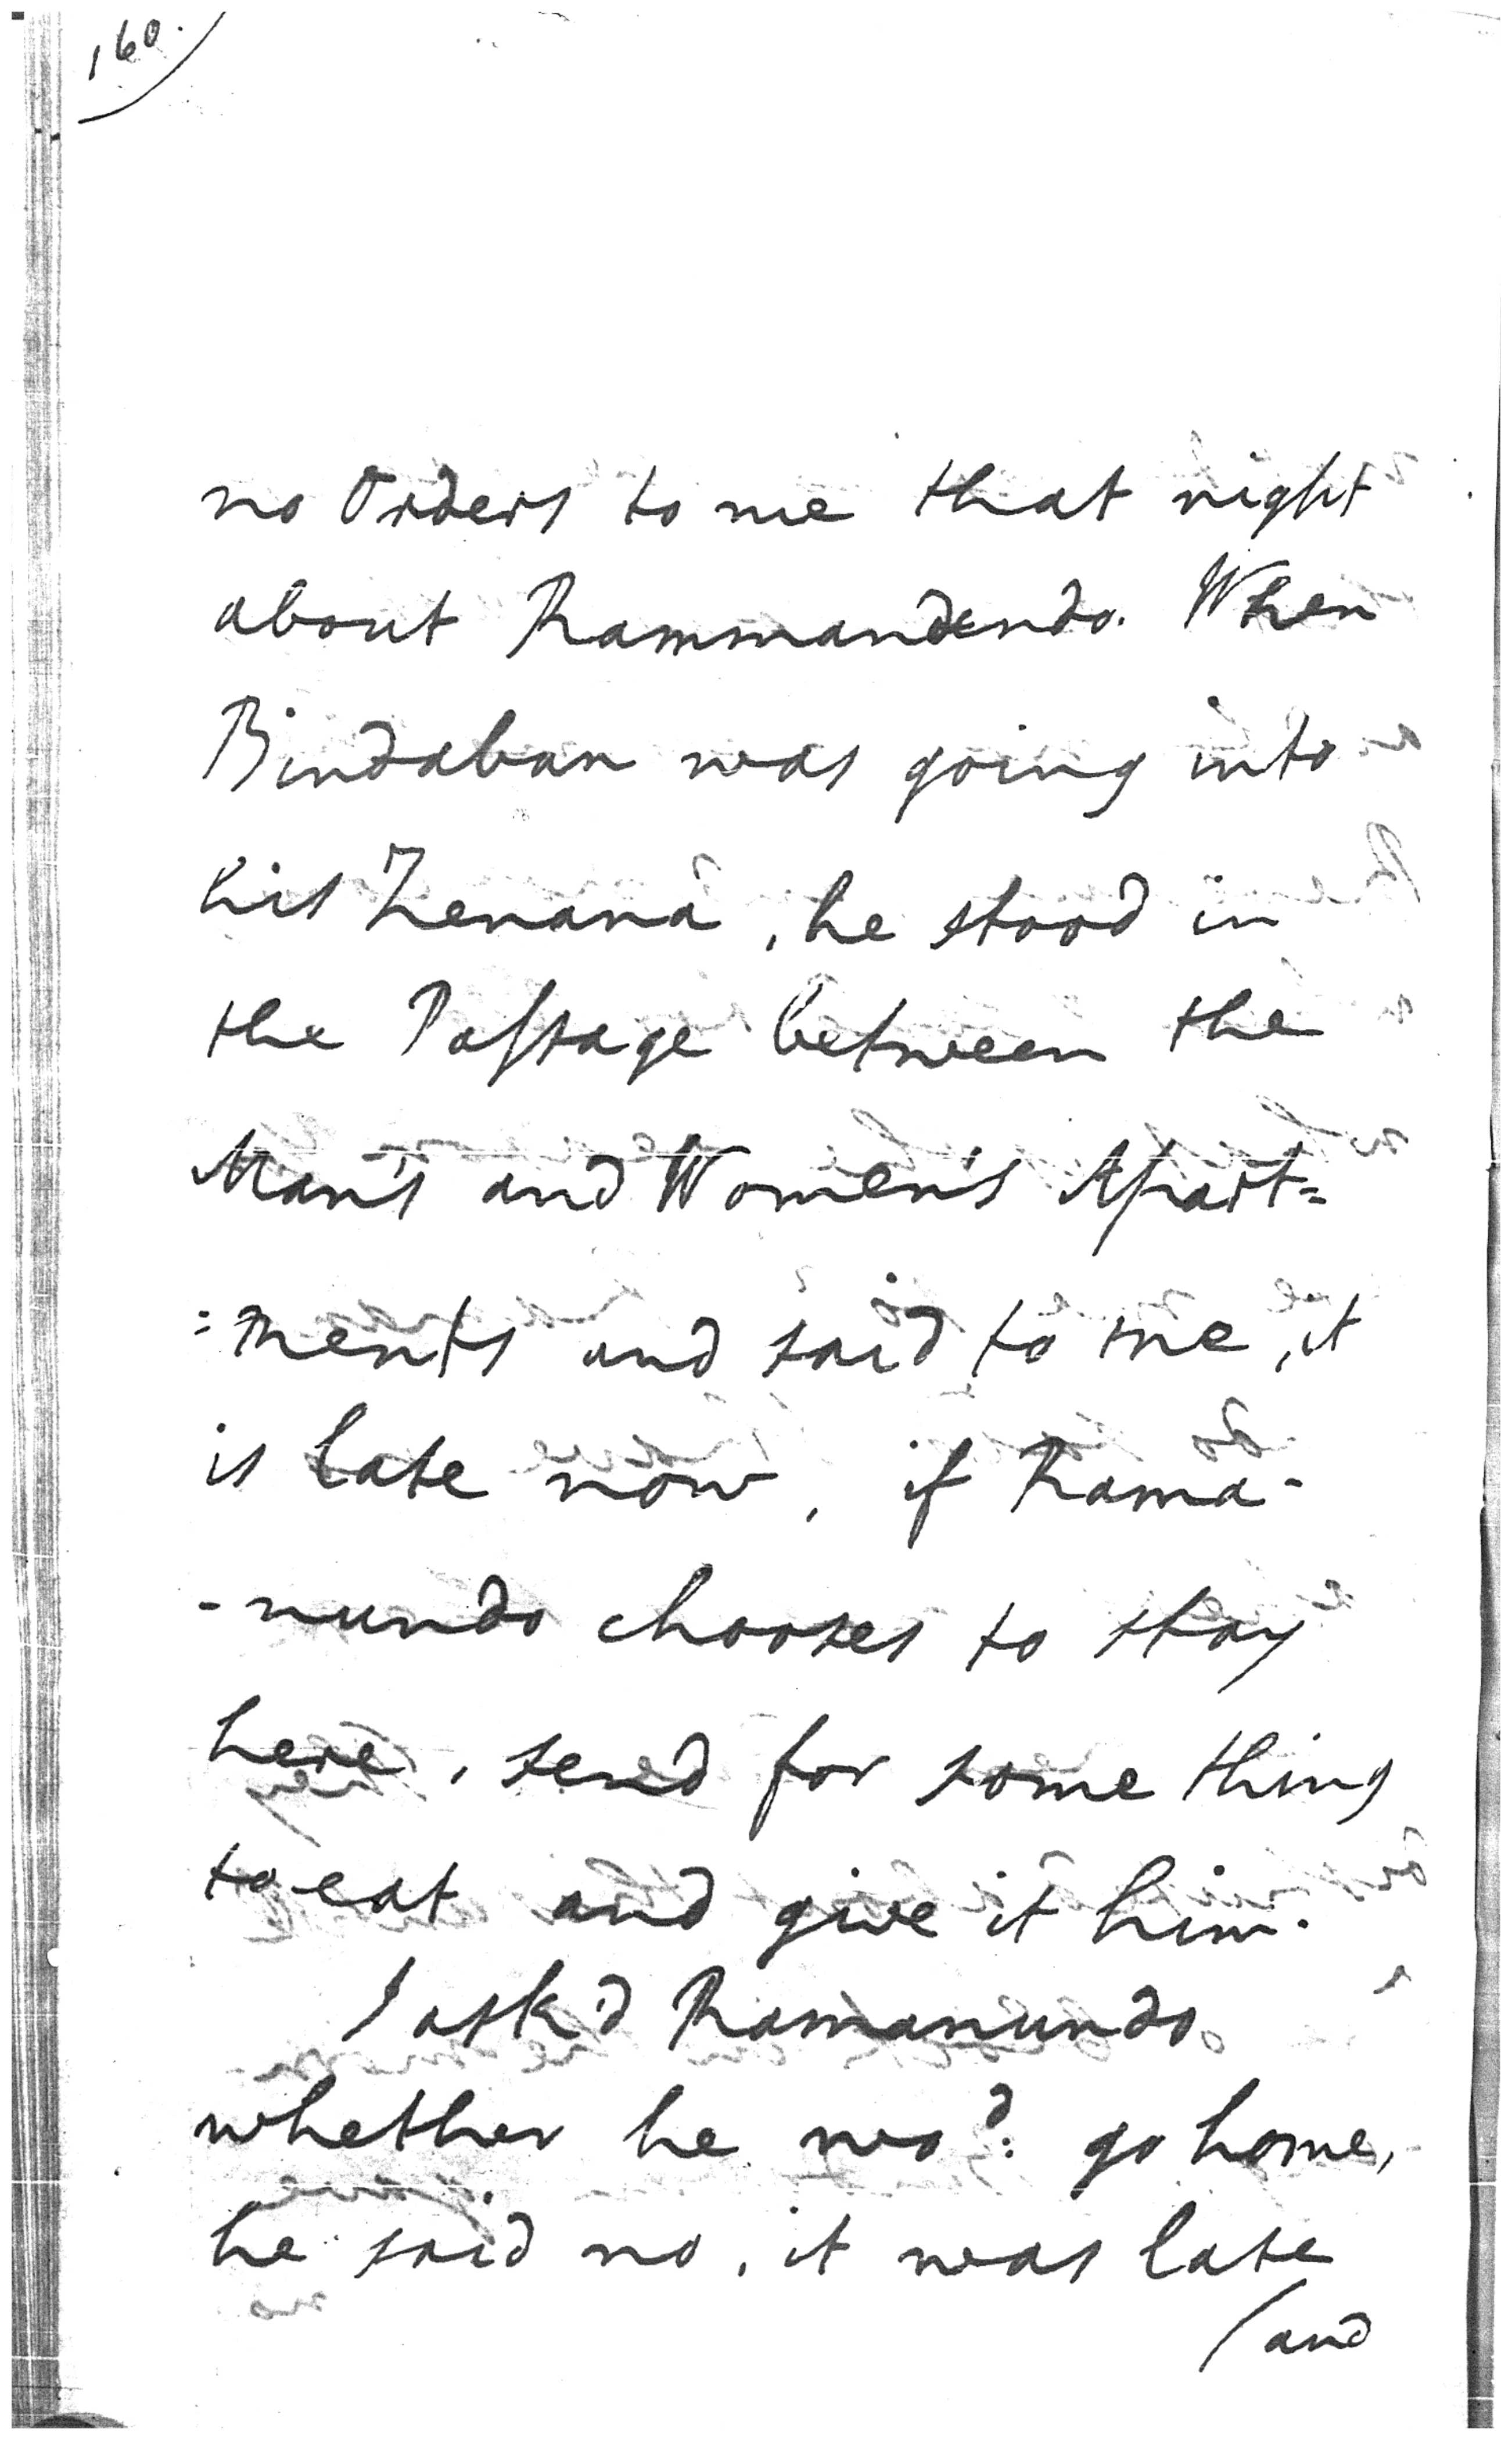 160.
no Orders to me that night
about Rammandendo. When
Bindaban was going into
his Zenana, he stood in
the Passage between the
Man's and Women's Apart=
=ments and said to me, it
is late now, if Rama-
-nundo chooses to stay
here, send for some thing
to eat and give it him.
I ask'd Ramanundo
whether he wod: go home,
he said no, it was late
(and